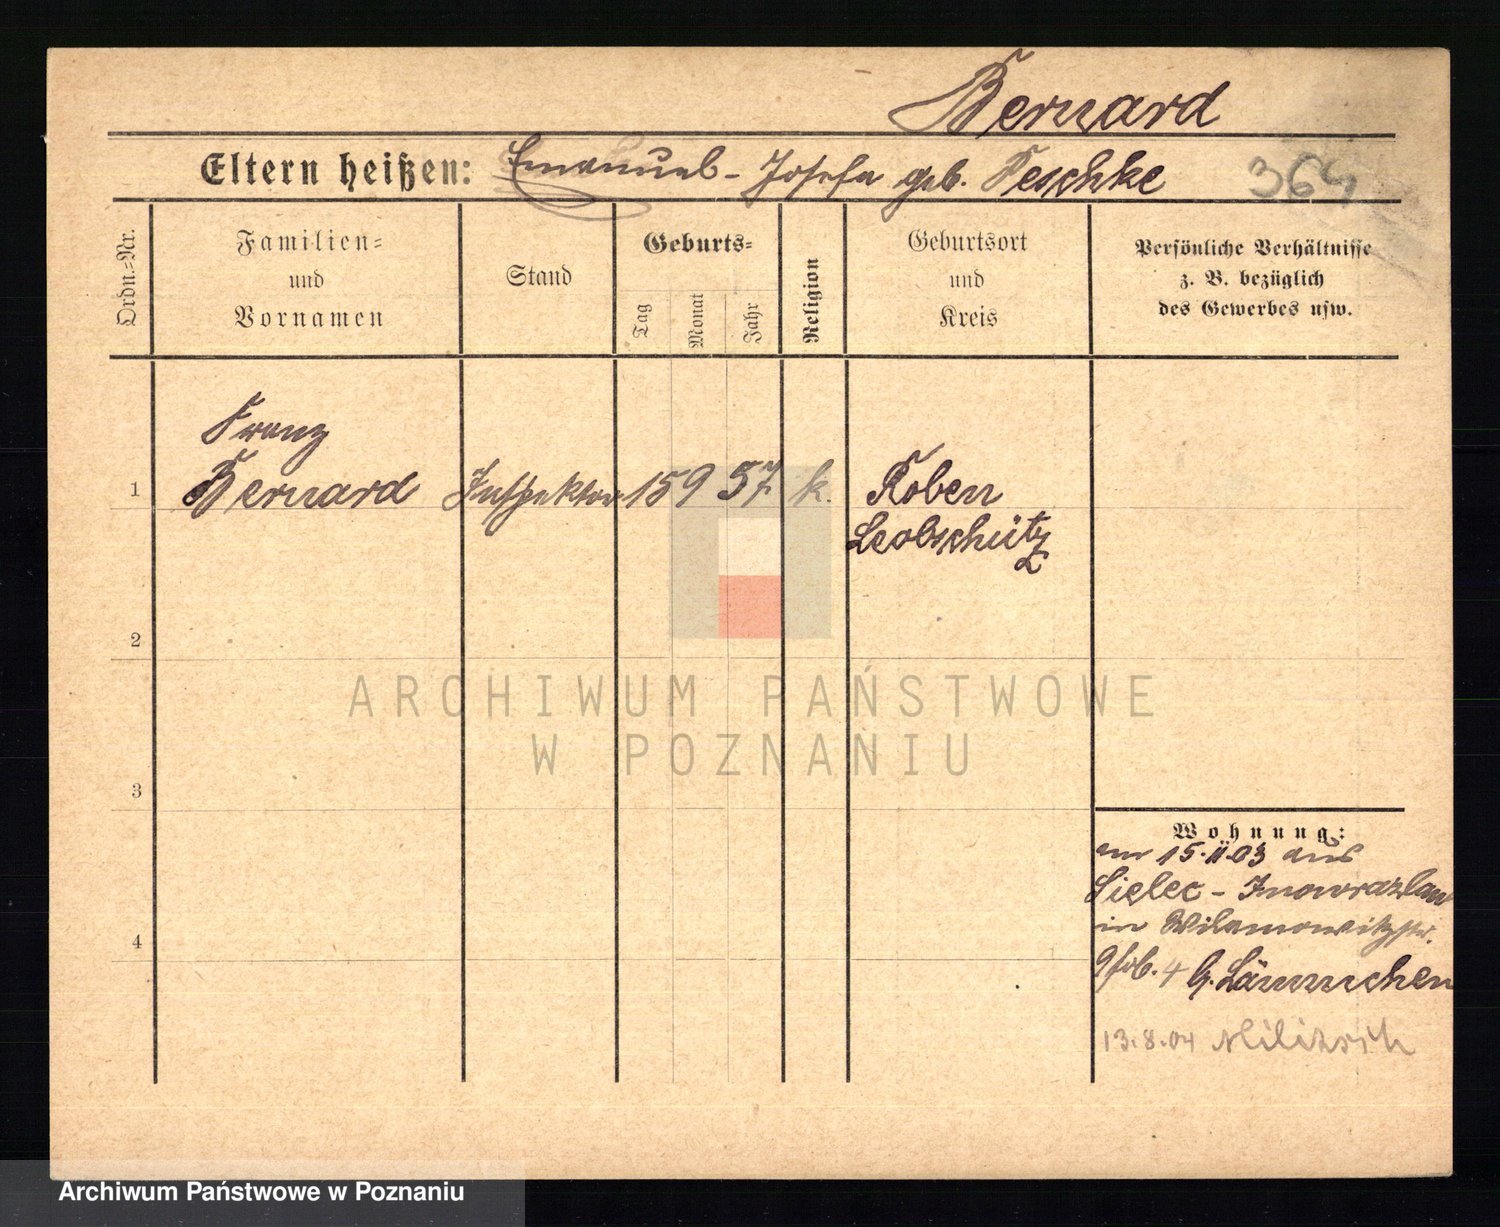 Bernard
Eltern heißen: Emanuel - Josefa geb. Peschke
364
Ordn.=Nr.
Familien=
und
Vornamen
Stand
Geburts=
Tag
Monat
Jahr
Religion
Geburtsort
und
Kreis
Persönliche Verhältnisse
z. B. bezüglich
des Gewerbes usw.
Franz
1 Bernard Inspektor 15 9 57 k. Roben
Leobschütz
2
ARCHIWUM PAŃSTWOWE
W POZNANIU
3
Wohnung:
am 15.11.03 aus
Sielec - Inowrazlaw
in Wilamowitzstr.
4
4 G. Lämmchen
13.8.04 Militsch
Archiwum Państwowe w Poznaniu